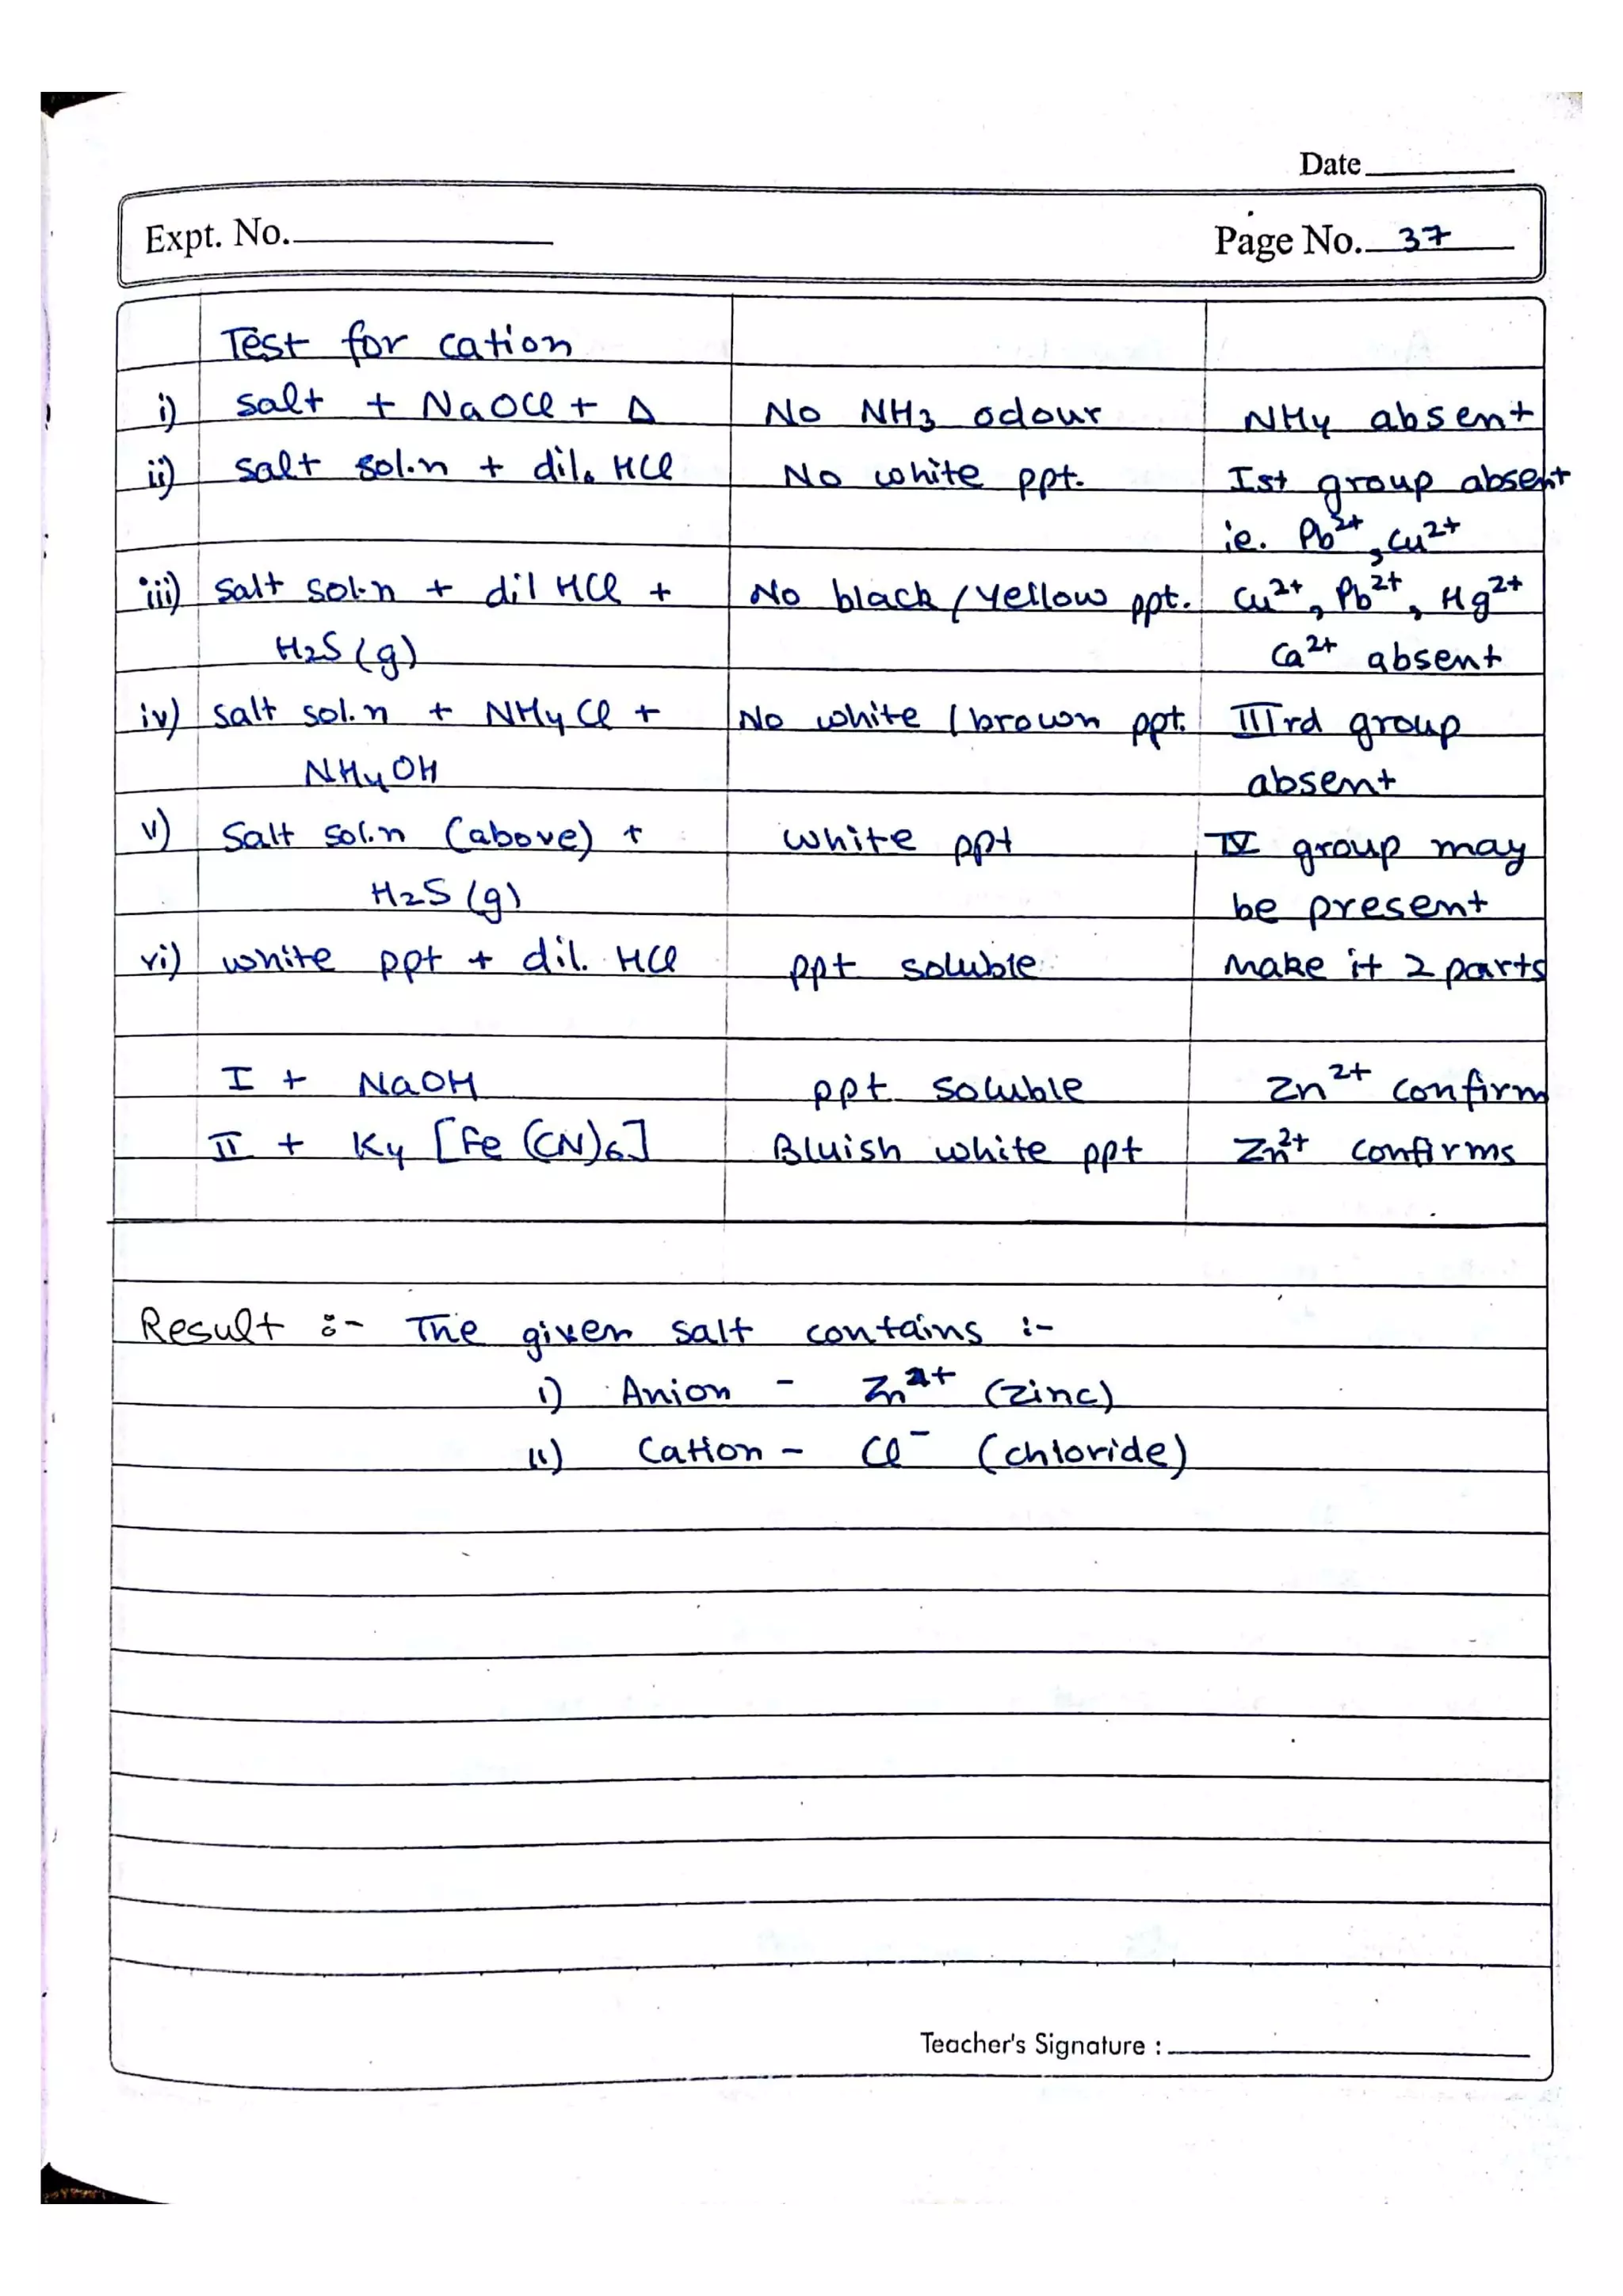 Date
Expt. No.
Page No. 37
Test for cation
i) salt + NaOCl + Δ No NH3 odour NH4 absent
ii) salt sol.n + dil. HCl No white ppt. Ist group absent
ie. Pb2+, Cu2+
iii) salt sol.n + dil HCl + No black / yellow ppt. Cu2+, Pb2+, Hg2+
H2S (g) Ca2+ absent
iv) salt sol.n + NH4Cl + No white / brown ppt. IIIrd group
NH4OH absent
v) Salt sol.n (above) + white ppt IV group may
H2S (g) be present
vi) white ppt + dil. HCl ppt soluble Make it 2 parts
I + NaOH ppt soluble Zn2+ confirm
II + K4 [Fe (CN)6] Bluish white ppt Zn2+ confirms
Result :- The given salt contains :-
i) Anion - Zn2+ (zinc)
ii) Cation - Cl- (chloride)
Teacher's Signature :